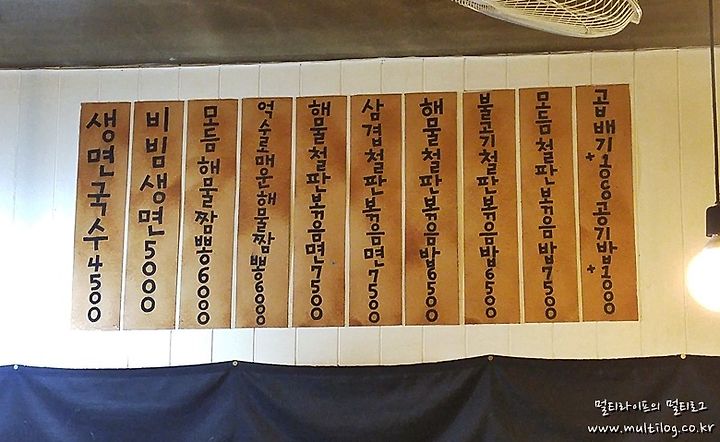 생면국수4500
비빔생면5000
모듬해물짬뽕6000
억수로매운해물짬뽕6000
해물철판볶음면7500
삼겹철판볶음면7500
해물철판볶음밥6500
불고기철판볶음밥6500
모듬철판볶음밥7500
곱배기+1000공기밥+1000
멀티라이프의 멀티로그
www.multilog.co.kr